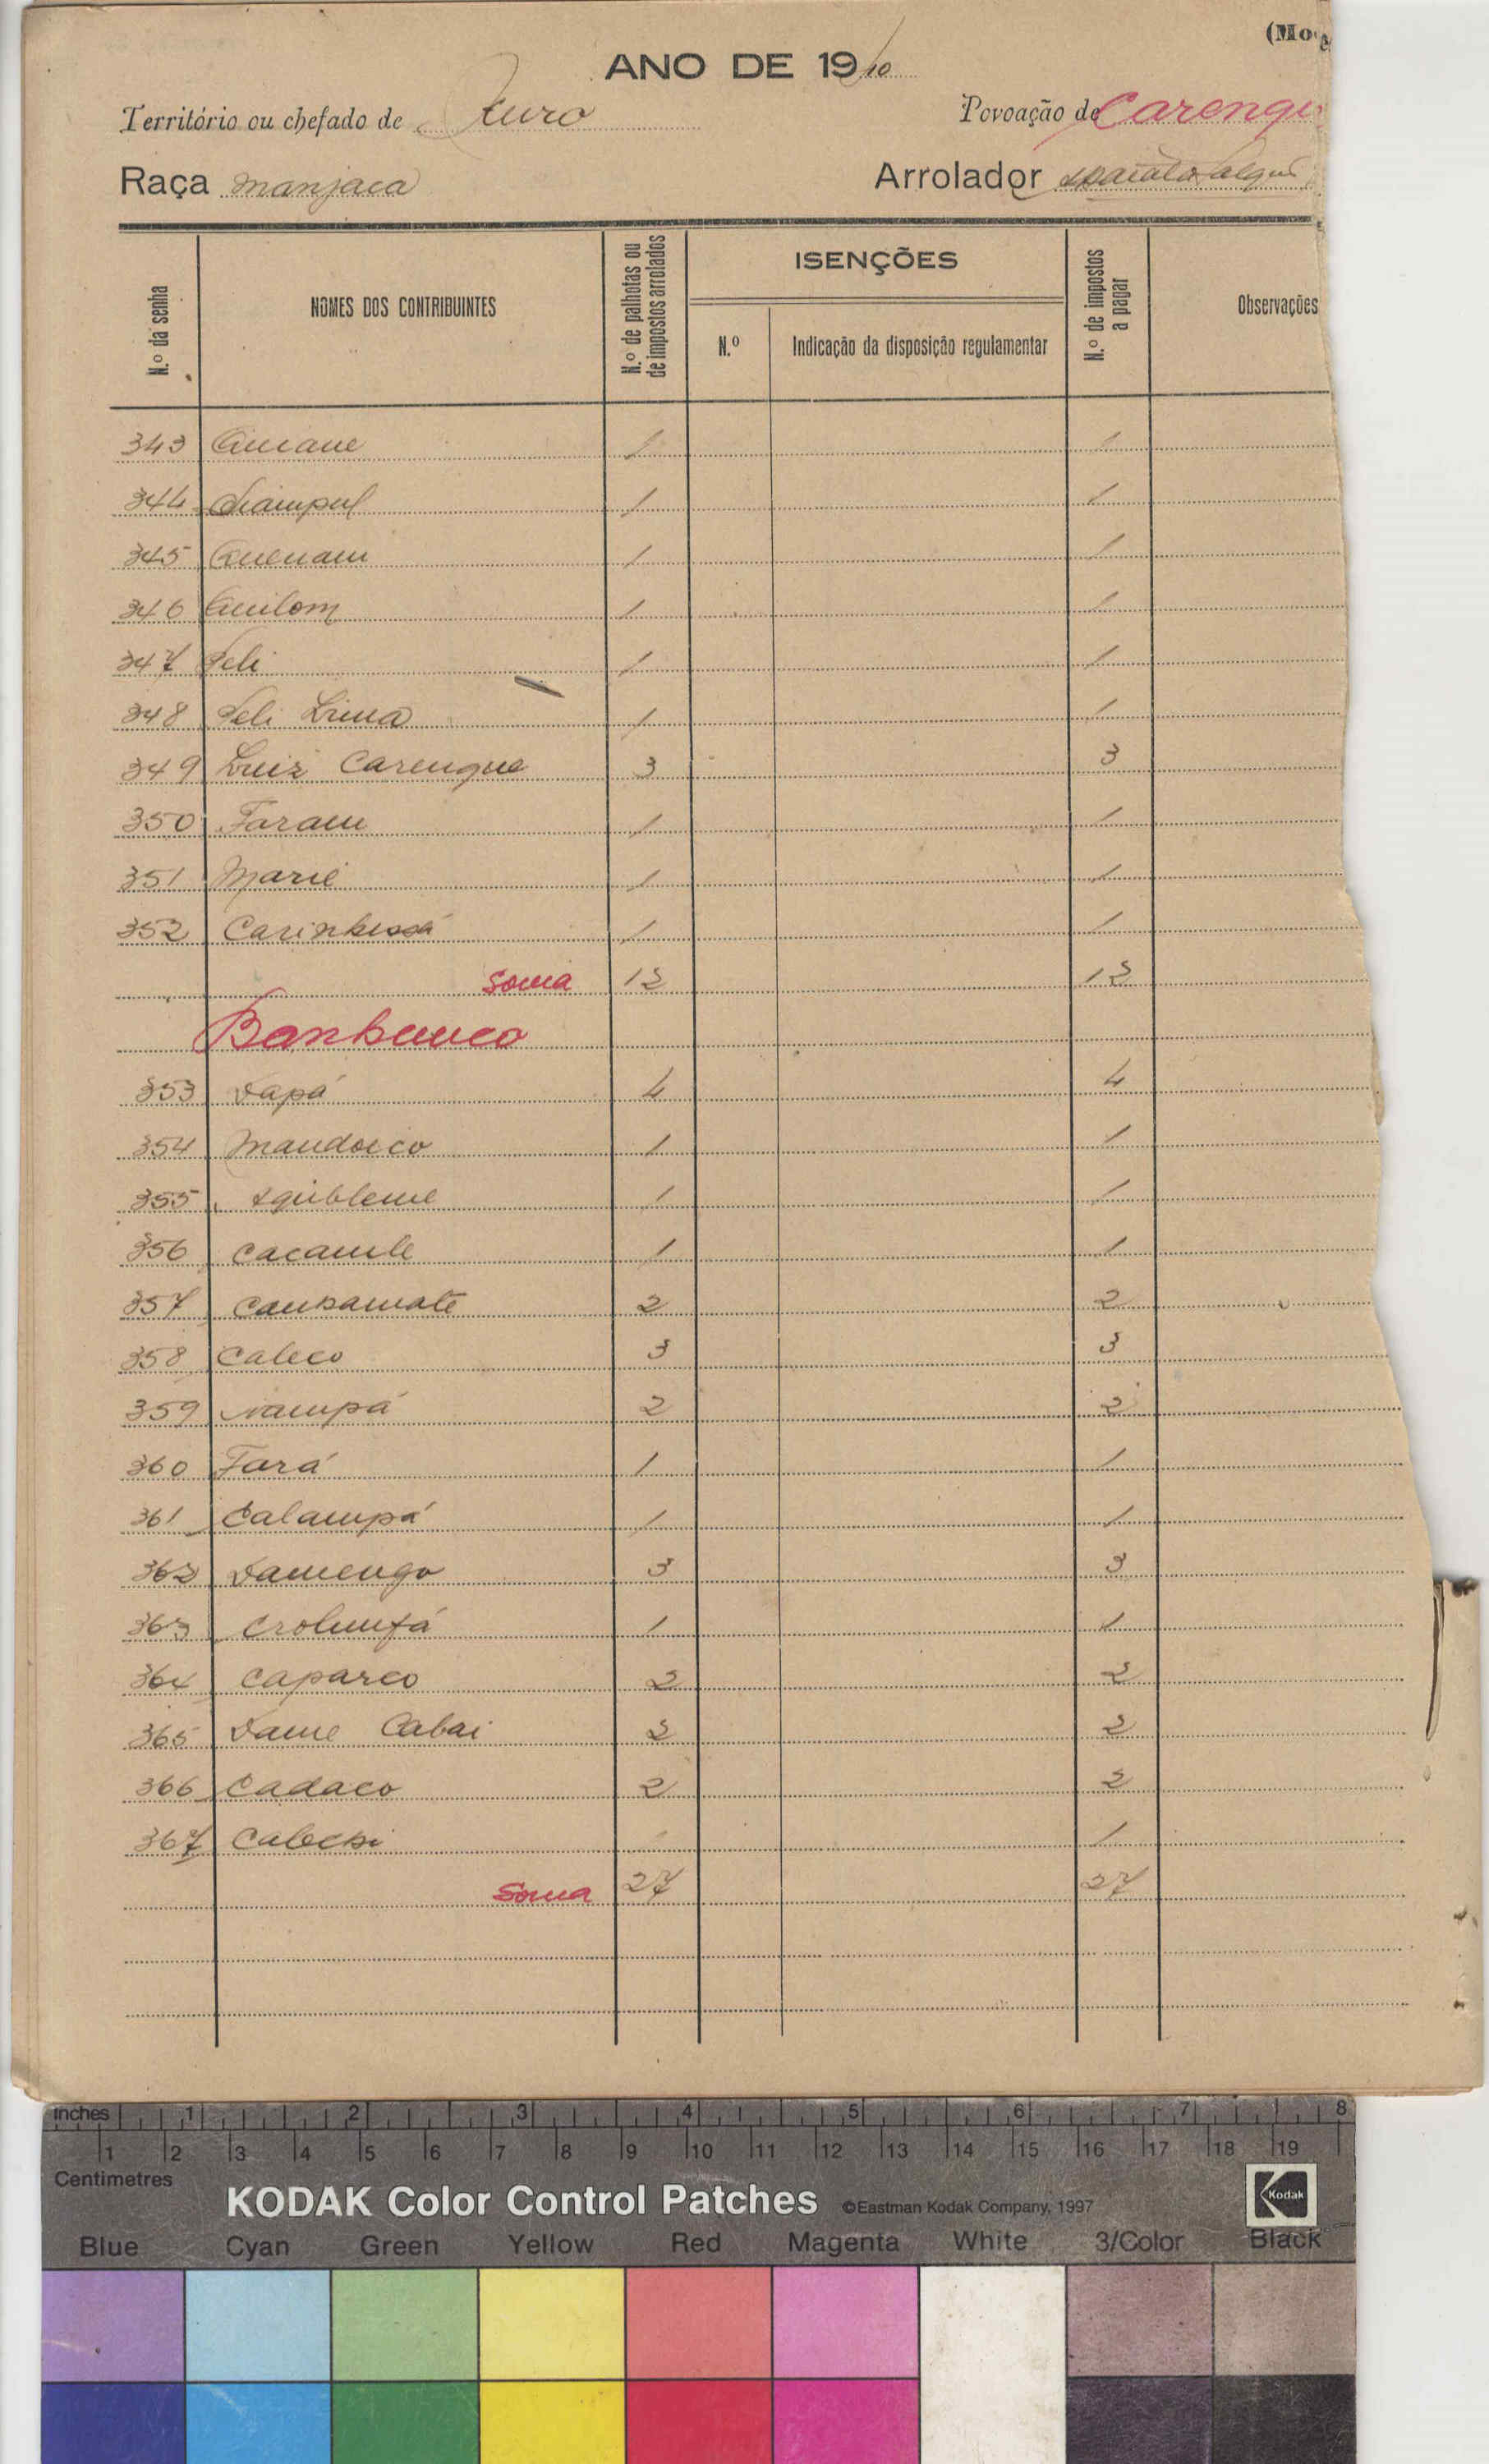 (Mo
ANO DE 1910
Território ou chefado de Churo Povoação de Carengu
Raça manjaca Arrolador
N.º da senha NOMES DOS CONTRIBUINTES N.º de palhotas ou de impostos arrolados ISENÇÕES N.º de impostos a pagar Observações
N.º Indicação da disposição regulamentar
343 1 1
344 1 1
345 Quenam 1 1
346 Quilom 1 1
347 Feli 1 1
348 Feli Lima 1 1
349 Luiz Carengue 3 3
350 Faram 1 1
351 Marié 1 1
352 1 1
Soma 12 12
353 Dapá 4 4
354 1 1
355 1 1
356 Cacamle 1 1
357 2 2
358 Caleco 3 3
359 Nampá 2 2
360 Fará 1 1
361 Calampá 1 1
362 Damengo 3 3
363 1 1
364 Capareo 2 2
365 Dame Cabai 2 2
366 Cadaco 2 2
367 1
Soma 27 27
inches 1 2 3 4 5 6 7 8
1 2 3 4 5 6 7 8 9 10 11 12 13 14 15 16 17 18 19
Centimetres
KODAK Color Control Patches ©Eastman Kodak Company, 1997 Kodak
Blue Cyan Green Yellow Red Magenta White 3/Color Black